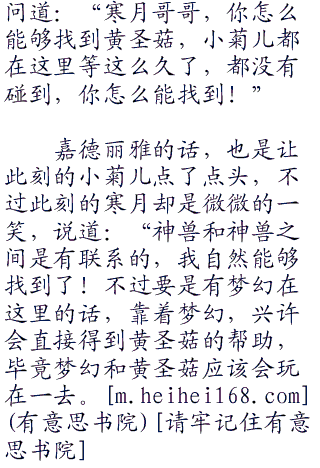 问道：“寒月哥哥，你怎么
能够找到黄圣菇，小菊儿都
在这里等这么久了，都没有
碰到，你怎么能找到！”
嘉德丽雅的话，也是让
此刻的小菊儿点了点头，不
过此刻的寒月却是微微的一
笑，说道：“神兽和神兽之
间是有联系的，我自然能够
找到了！不过要是有梦幻在
这里的话，靠着梦幻，兴许
会直接得到黄圣菇的帮助，
毕竟梦幻和黄圣菇应该会玩
在一去。[m.heihei168.com]
(有意思书院)[请牢记住有意
思书院]